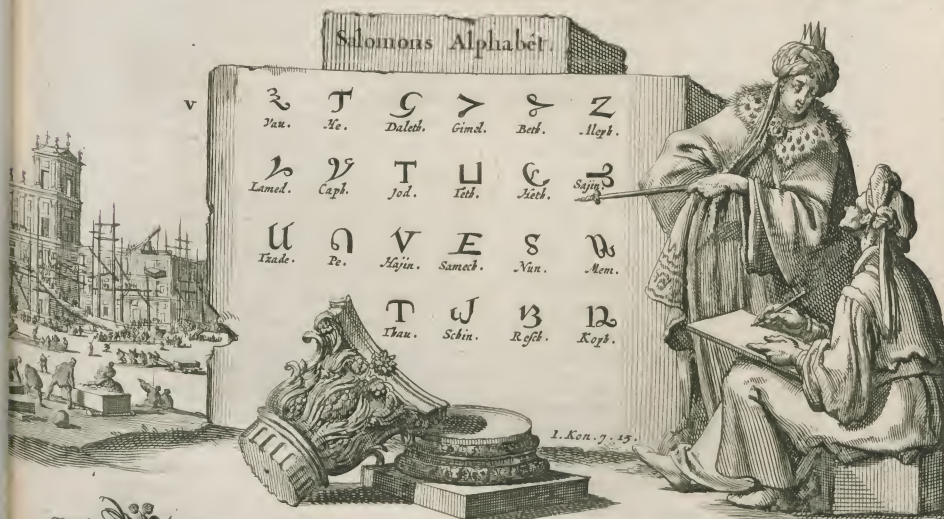 Salomons Alphabêt.
V
Vau. He. Daleth. Gimel. Beth. Aleph.
Lamed. Caph. Jod. Teth. Heth. Sajin.
Tzade. Pe. Hajin. Samech. Nun. Mem.
Thau. Schin. Resch. Koph.
1. Kon. 7. 15.